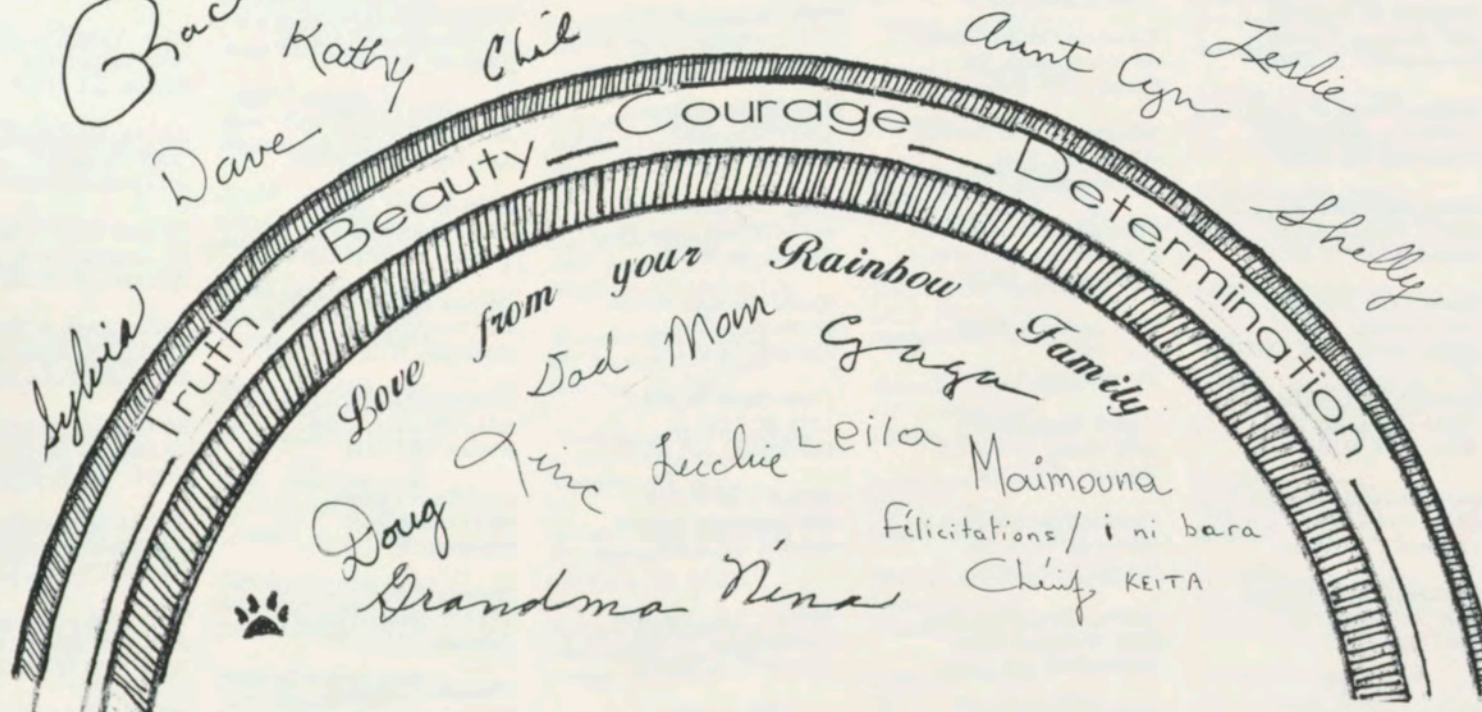 Kathy
Dave
Aunt Cyn
Leslie
Shelly
Sylvia
Truth — Beauty — Courage — Determination
Love from your Rainbow Family
Dad Mom Gaga
Leila
Maimouna
Doug
Félicitations / i ni bara
Chérif, KEITA
Grandma Nina